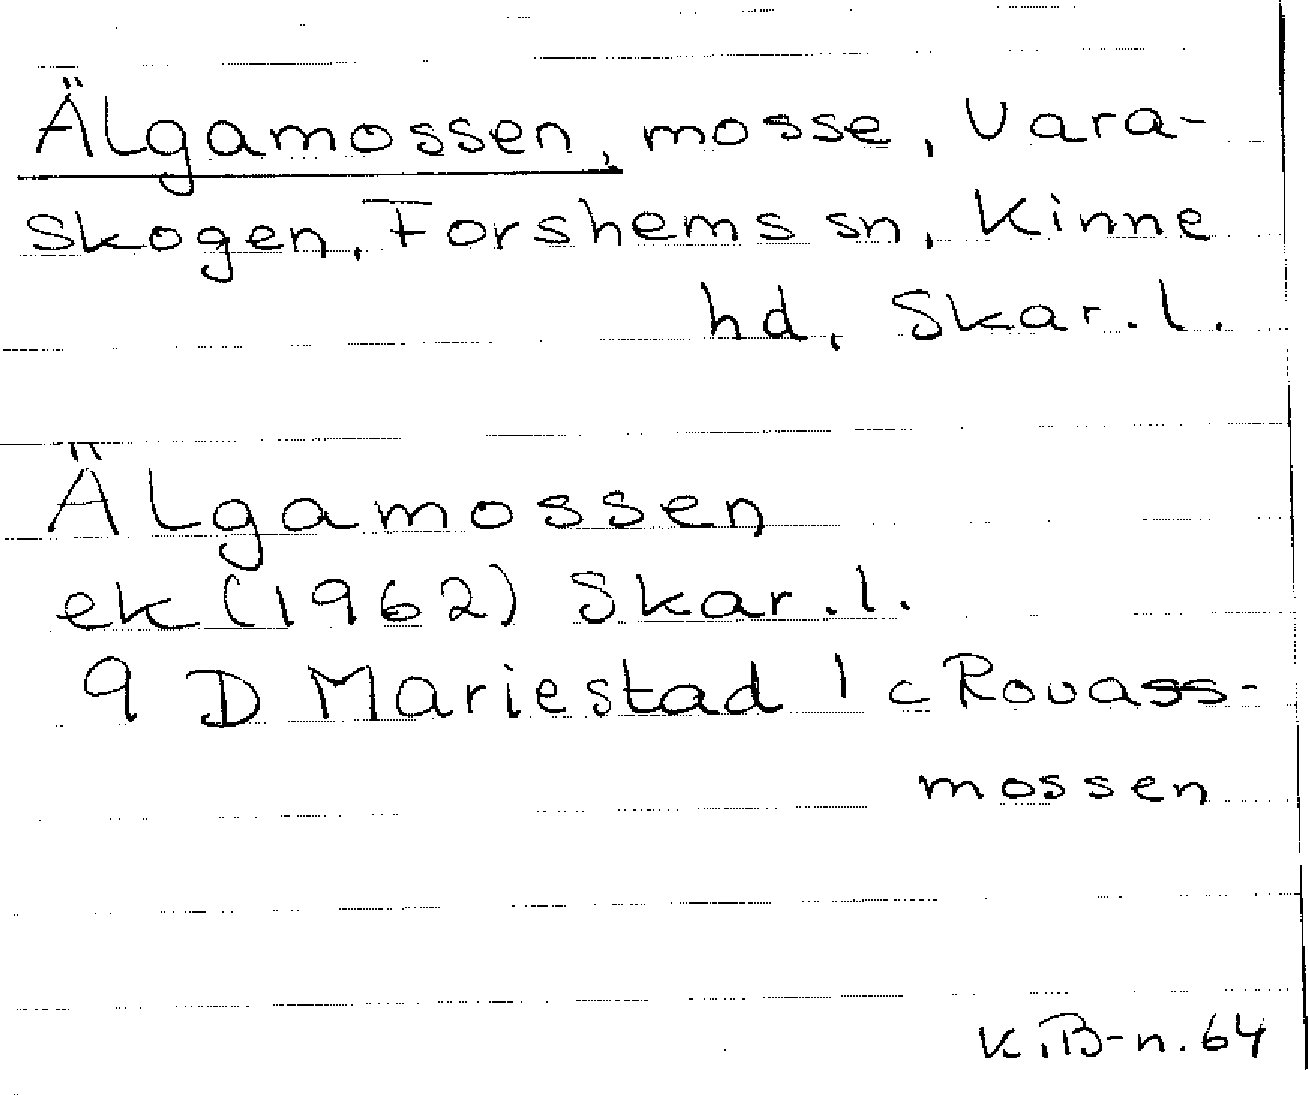 Älgamossen, mosse, Vara-
skogen, Forshems sn, Kinne
hd, Skar.l.
Älgamossen
ek (1962) Skar.l.
9 D Mariestad 1 c Rovass-
mossen
K.B-n. 64